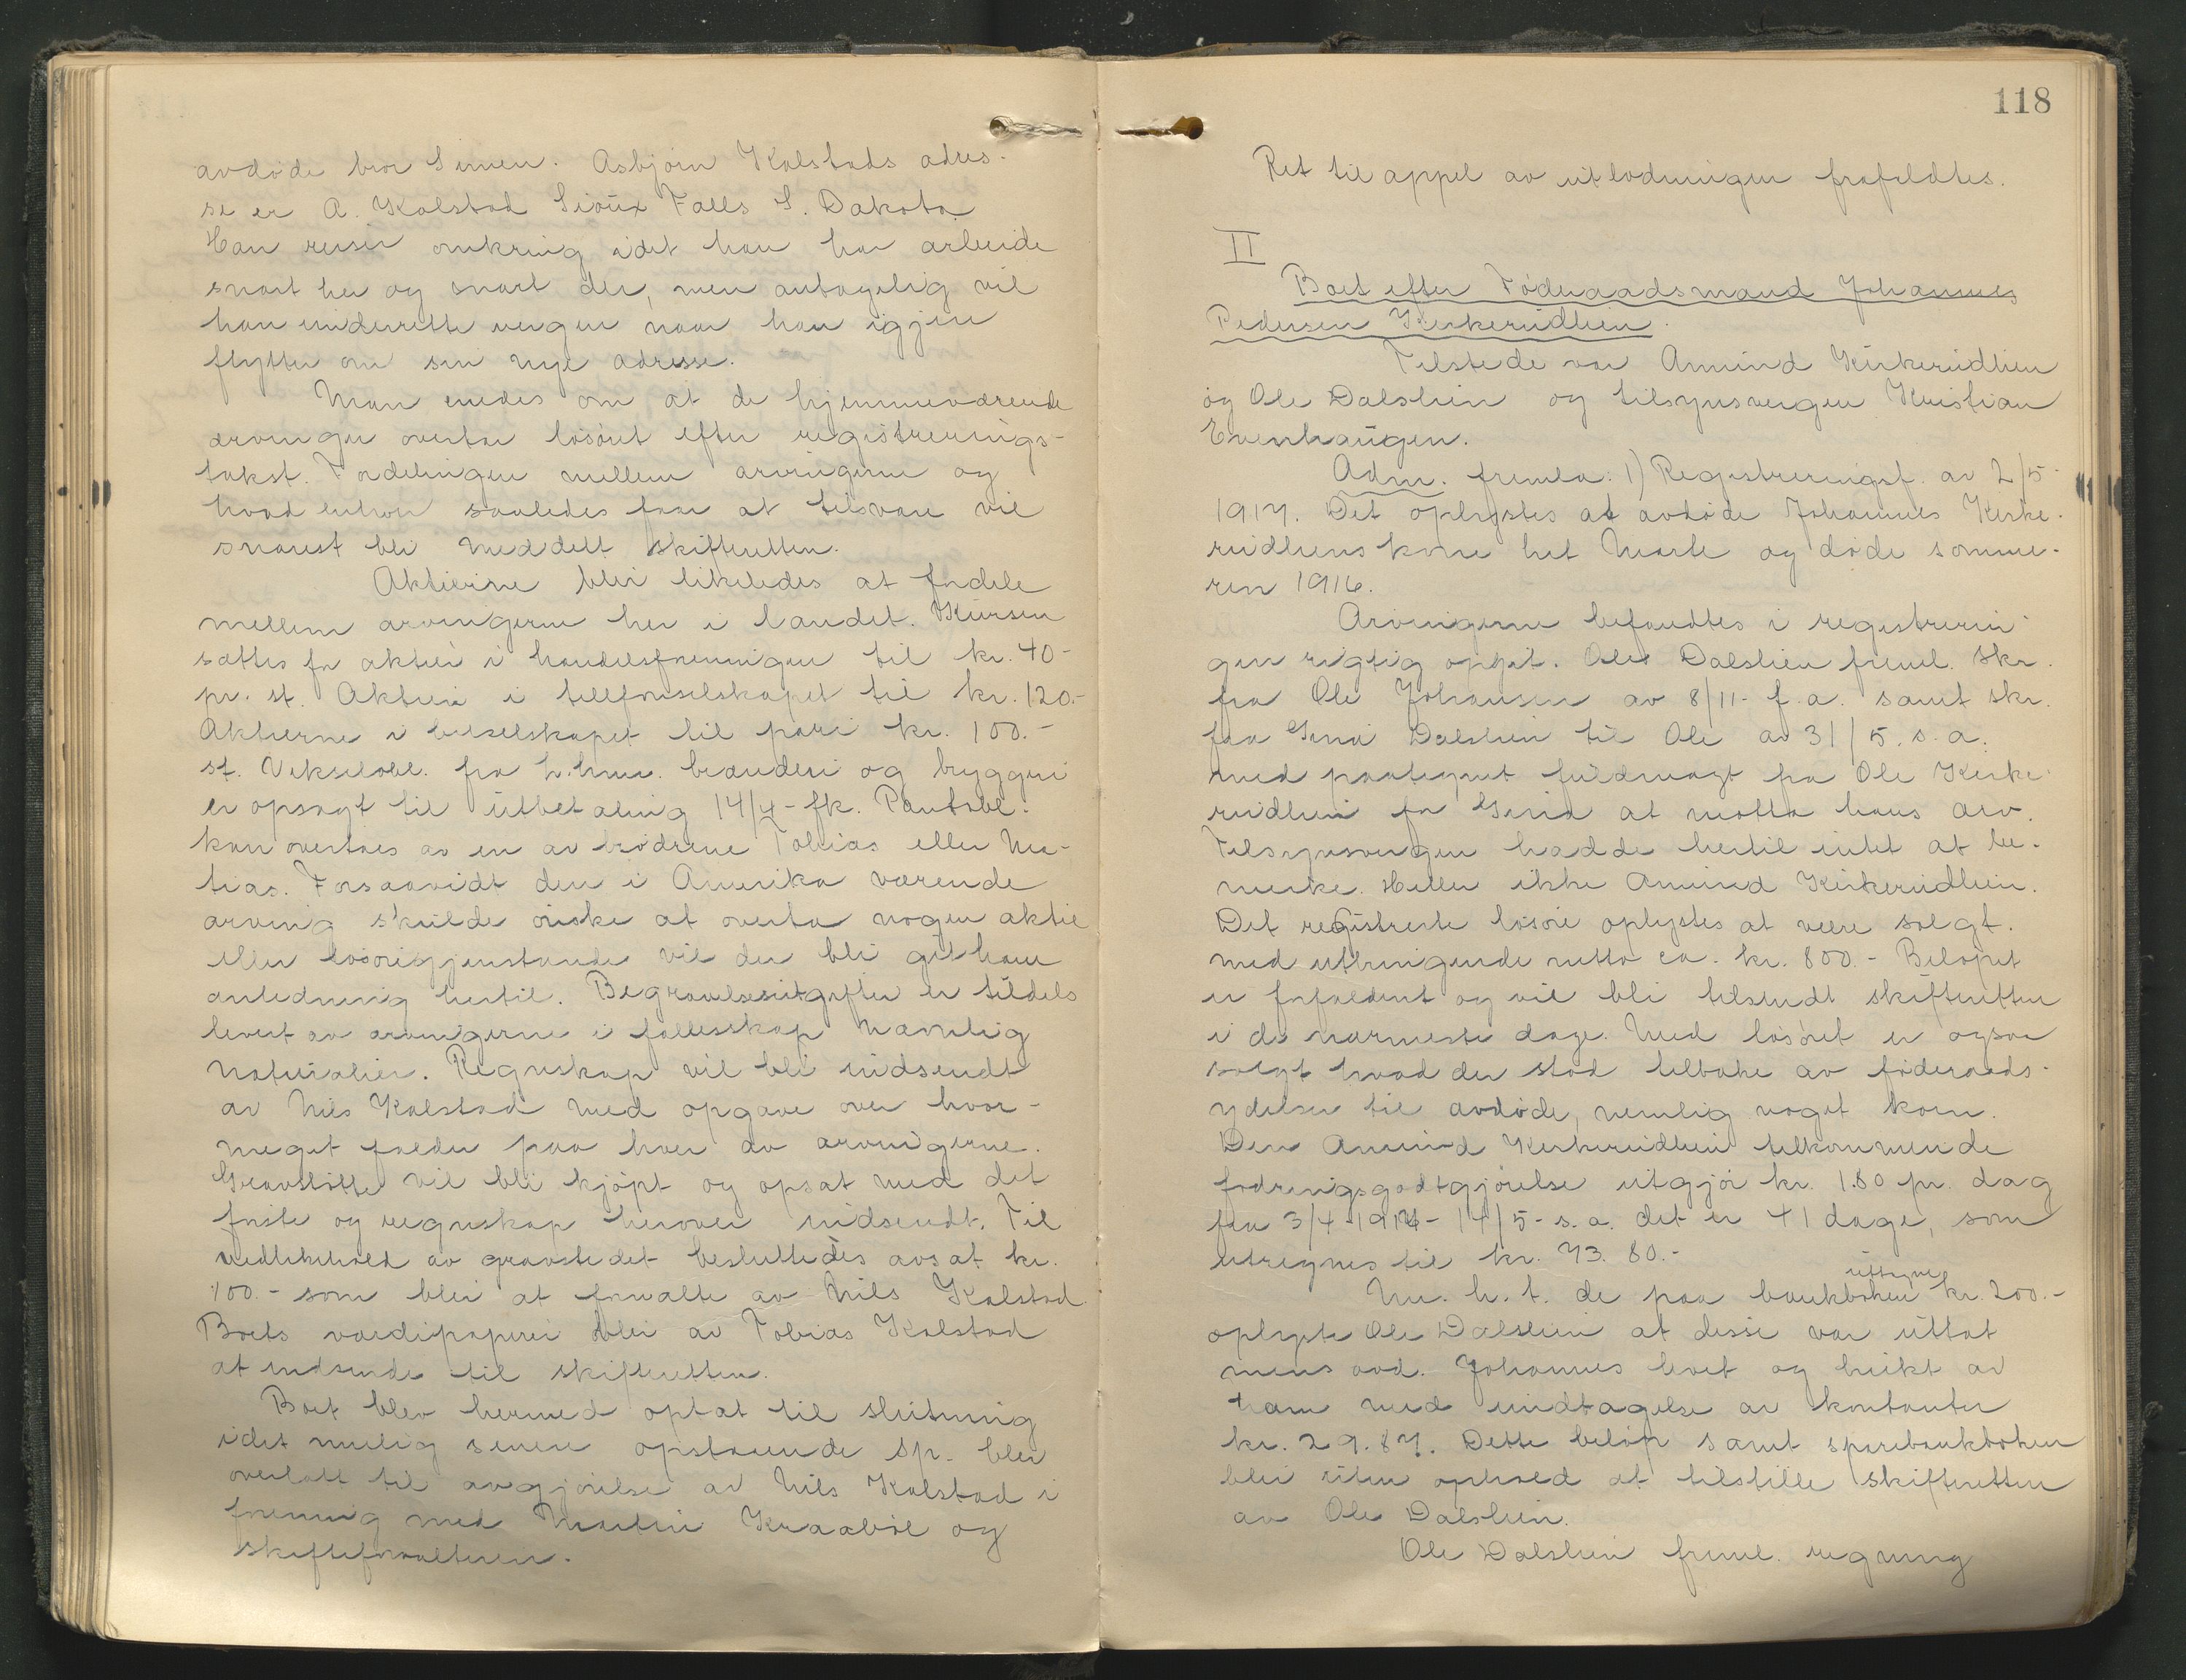 avdøde bror Simen. Asbjørn Kolstads adres-
se er A. Kolstad Sioux Falls S. Dakota.
Han reiser omkring idet han har arbeide
snart her og snart der, men antagelig vil
han underrette vergen naar han igjen
flytter om sin nye adresse.
Man enedes om at de hjemmeværende
arvinger overtar løsøret efter registrerings-
takst. Fordelingen mellem arvingerne og
hvad enhver saaledes faar at tilsvare vil
snarest bli meddelt skifteretten.
Aktierne blir likeledes at fordele
mellem arvingerne her i landet. Kursen
sættes for aktier i handelsforeningen til kr. 40-
pr. st. Aktier i tellefonselskapet til kr. 120.-
Aktierne i bilselskapet til pari kr. 100.-
st. Vekselobl. fra L.hmr. brænderi og bryggeri
er opsagt til utbetaling 14/4- fk. Pantobl.
kan overtaes av en av brødrene Tobias eller Ma-
tias. Forsaavidt den i Amerika værende
arving skulde ønske at overta nogen aktie
eller løsøregjenstande vil der bli git ham
anledning hertil. Begravelsesutgifter er tildels
levert av arvingerne i fællesskap næmlig
naturalier. Regnskap vil bli indsendt
av Nils Kolstad med opgave over hvor-
meget falder paa hver av arvingerne.
Gravstøtte vil bli kjøpt og opsat med det
første og regnskap herover indsendt. Til
vedlikehold av gravstedet besluttedes avsat kr.
100.- som blir at forvalte av Nils Kolstad.
Boets værdipapirer blir av Tobias Kolstad
at indsende til skifteretten.
Boet blev hermed optat til slutning
idet mulig senere opstaaende sp. blev
overlatt til avgjørelse av Nils Kolstad i
forening med Martin Kraabøl og
skifteforvalteren.
118
Ret til appel av utlodningen frafaldtes.
II
Boet efter Føderaadsmand Johannes
Pedersen Kirkerudlien.
Tilstede var Amund Kirkerudlien
og Ole Dalslien og tilsynsvergen Kristian
Evenhaugen.
Adm. fremla: 1) Registreringsf. av 2/5-
1917. Det oplystes at avdøde Johannes Kirke-
rudliens kone het Marte og døde somme-
ren 1916.
Arvingerne befandtes i registrerin-
gen rigtig opgit. Ole Dalslien freml. skr.
fra Ole Johansen av 8/11- f.a. samt skr.
fra Gina Dalslien til Ole av 31/5. s.a.
med paategnet fuldmagt fra Ole Kirke-
rudlien for Gina at motta hans arv.
Tilsynsvergen hadde hertil intet at be-
merke. Heller ikke Amund Kirkerudlien.
Det registrerte løsøre oplystes at være solgt.
med utbringende netto ca. kr. 800.- Beløpet
er forfaldent og vil bli tilsendt skifteretten
i de nærmeste dage. Med løsøret er ogsaa
solgt hvad der stod tilbake av føderaads-
ydelser til avdøde, nemlig noget korn.
Den Amund Kirkerudlien tilkommende
fodringsgodtgjørelse utgjør kr. 1.80 pr. dag
fra 3/4-1917- 14/5- s.a. det er 41 dage, som
utregnes til kr. 73.80.-
M. h. t. de paa bankboken uttagne kr. 200.-
oplyste Ole Dalslien at disse var uttat
mens avd. Johannes levet og brukt av
ham med undtagelse av kontanter
kr. 29.87. Dette beløp samt sparebankboken
blir uten ophold at tilstille skifteretten
av Ole Dalslien.
Ole Dalslien freml. regning